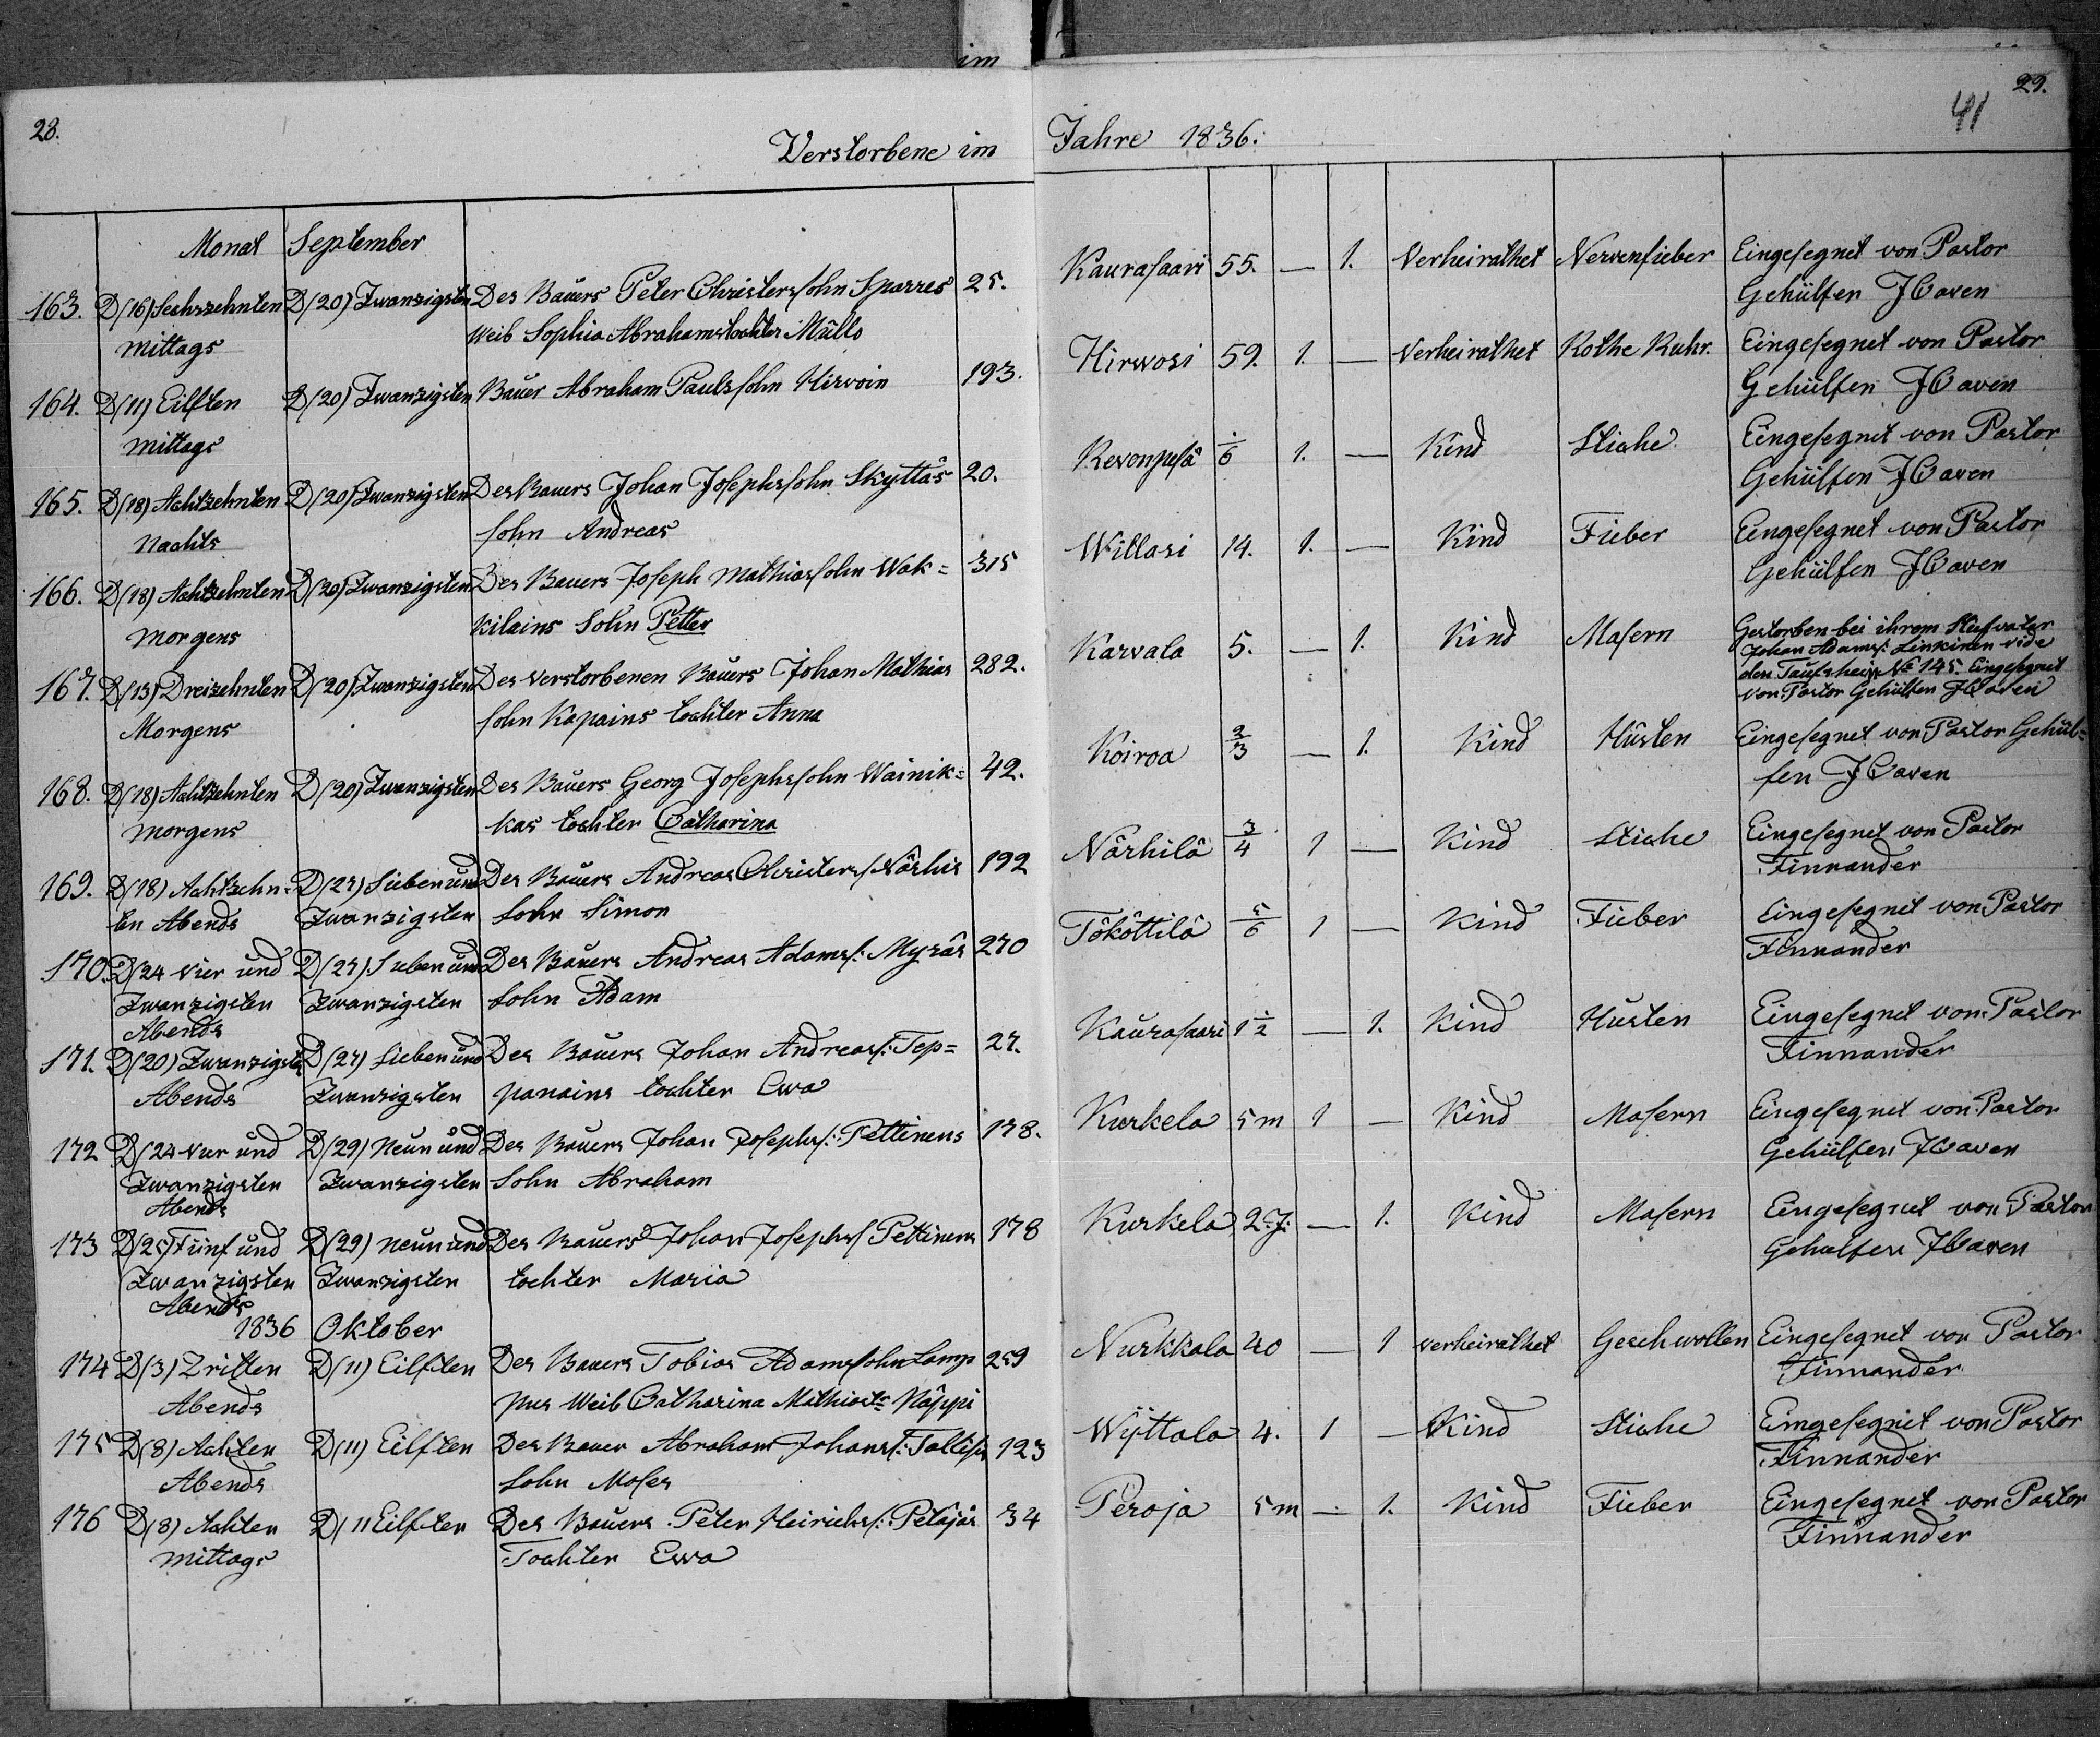 im
28.
Verstorbene im
Monat September
163. D(16) Sechszehnten D(20) Zwanzigsten Des Bauers Peter Christerssohn Sparres 25.
Mittags Weib Sophia Abrahamstochter Mülls
164. D(11) Eilften D(20) Zwanzigsten Bauer Abraham Paulssohn Hirvoin 193.
Mittags
165. D(18) Achtzehnten D(20) Zwanzigsten Des Bauers Johan Josephssohn Skyttäs 20.
Nachts sohn Andreas
166. D(18) Achtzehnten D(20) Zwanzigsten Des Bauers Joseph Mathiassohn Wak= 315
Morgens kilains Sohn Petter
167. D(13) Dreizehnten D(20) Zwanzigsten Des verstorbenen Bauers Johan Mathias 282.
Morgens sohn Kapains tochter Anna
168. D(18) Achtzehnten D(20) Zwanzigsten Des Bauers Georg Josephssohn Wainik= 42.
Morgens kas tochter Catharina
169. D(18) Achtzehn= D(27) Sieben und Des Bauers Andreas Christers/ Närhis 192
ten Abends Zwanzigsten Sohn Simon
170. D(24 Vier und D(27) Sieben und Des Bauers Andreas Adams/: Myräs 270
Zwanzigsten Zwanzigsten Sohn Adam
Abends
171. D(20) Zwanzigsten D(27) Sieben und Des Bauers Johan Andreas/: Tep= 27.
Abends Zwanzigsten panains tochter Ewa
172 D(24 Vier und D(29) Neun und Des Bauers Johan Josephs/: Pettinens 178.
Zwanzigsten Zwanzigsten Sohn Abraham
Abends
173 D(25) Fünf und D(29) Neun und Des Bauers Johan Josephs/ Pettinens 178
Zwanzigsten Zwanzigsten tochter Maria
Abends
1836 Oktober
174 D(3) Dritten D(11) Eilften Des Bauers Tobias Adamssohn Lamp 259
Abends pus Weib Catharina Mathiast= Näppi
175 D(8) Achten D(11) Eilften Des Bauer Abraham Johans/: 123
Abends Sohn Moses
176 D(8) Achten D(11 Eilften Des Bauers Peter Heinrichs/: Petäjäs 34
Mittags Tochter Ewa
29.
41
Jahre 1836.
Kaurasaari 55. — 1. Verheirathet Nervenfieber Eingesegnet von Pastor
Gehülfen JCaven
Hirwosi 59. 1. — Verheirathet Rothe Ruhr. Eingesegnet von Pastor
Gehülfen JCaven
Revonpesä 1/6 1. — Kind Stiche Eingesegnet von Pastor
Gehülfen JCaven
Willasi 14. 1. — Kind Fieber Eingesegnet von Pastor
Gehülfen JCaven
Karvala 5. — 1. Kind Masern Gestorben bei ihrem Stiefvater
Johan Adams/: Linkinen vide
den Taufschein No 145. Eingesegnet
von Pastor Gehülfen JCaven
Koiroa 2/3 — 1. Kind Husten Eingesegnet von Pastor Gehül=
fen JCaven
Närhilä 3/4 1 — Kind Stiche Eingesegnet von Pastor
Finnander
Tököttilä 5/6 1 — Kind Fieber Eingesegnet von Pastor
Finnander
Kaurasaari 1 1/2 — 1. Kind Husten Eingesegnet von Pastor
Finnander
Kurkela 5m 1 — Kind Masern Eingesegnet von Pastor
Gehülfen JCaven
Kurkela 2.J. — 1. Kind Masern Eingesegnet von Pastor
Gehülfen JCaven
Nurkkala 40 — 1 verheirathet Geschwollen Eingesegnet von Pastor
Finnander
Wÿttala 4. 1 — Kind Stiche Eingesegnet von Pastor
Finnander
Peroja 5m — 1. Kind Fieber Eingesegnet von Pastor
Finnander